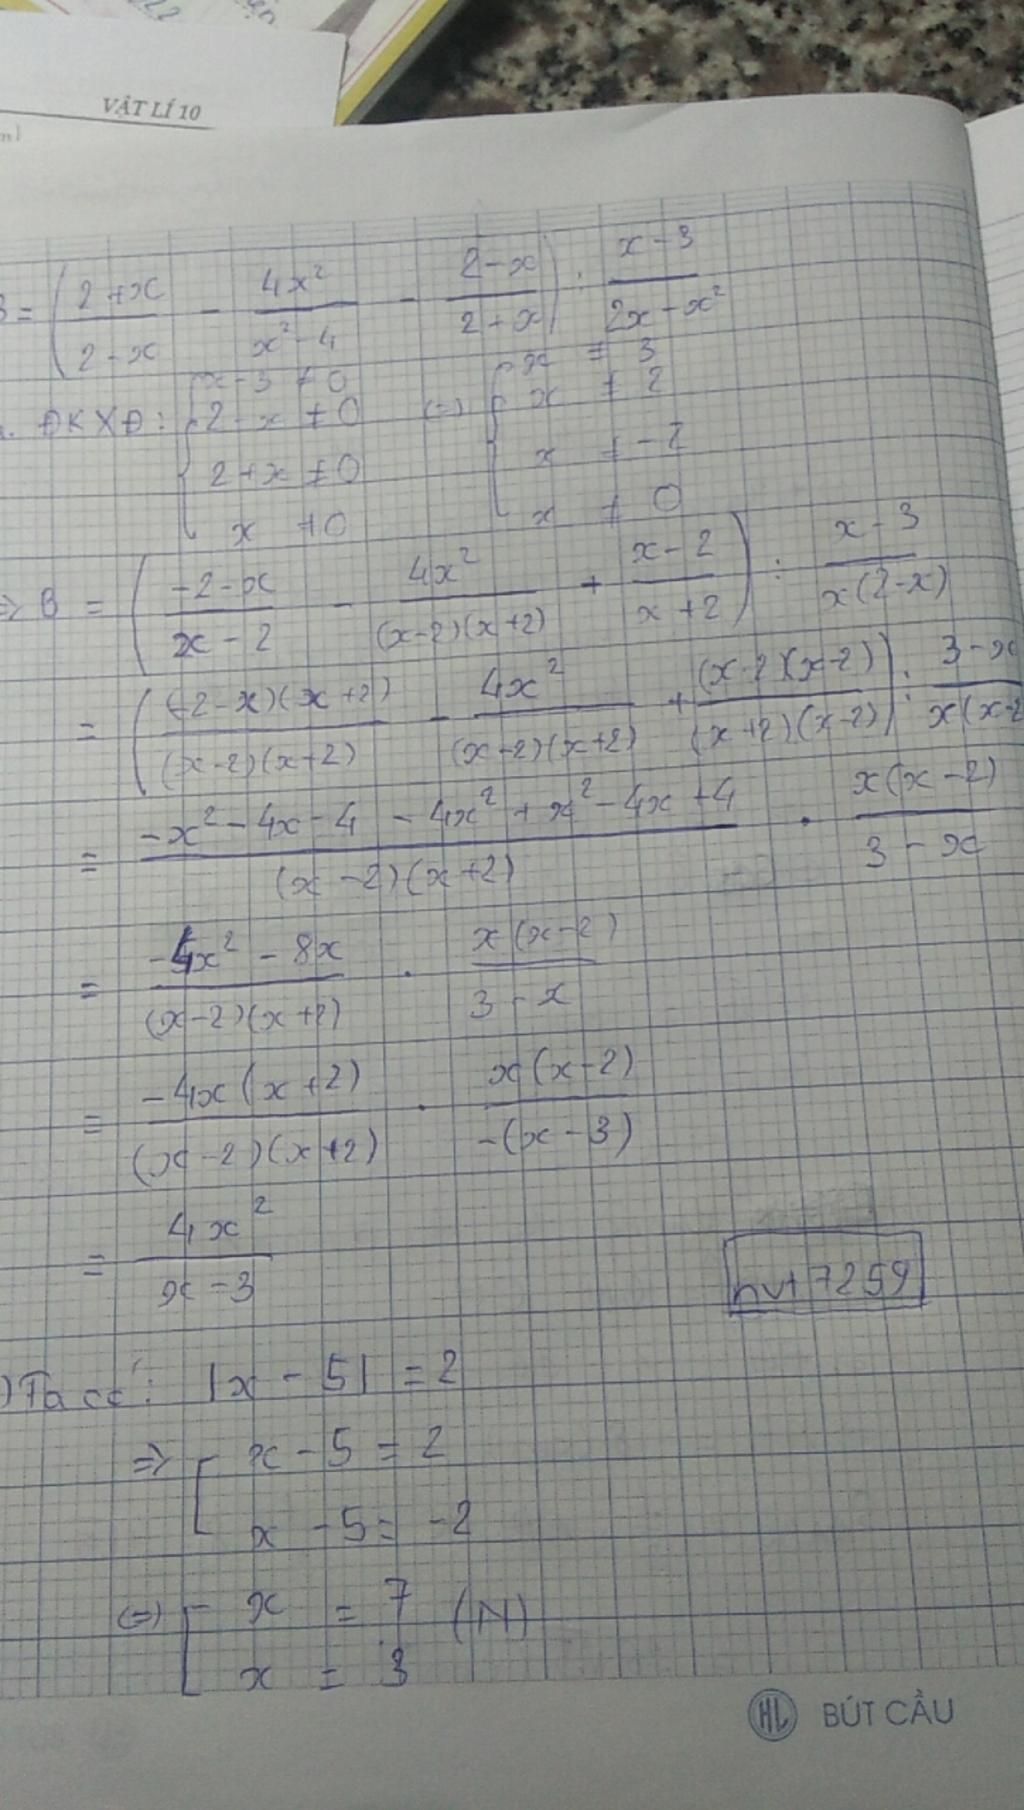 VẬT LÍ 10
B = ( (2+x)/(2-x) - 4x²/(x²-4) - (2-x)/(2+x) ) : (x-3)/(2x-x²)
ĐKXĐ: { x-3 ≠ 0 (=) { x ≠ 3
2-x ≠ 0 x ≠ 2
2+x ≠ 0 x ≠ -2
x ≠ 0 x ≠ 0
=> B = ( (-2-x)/(x-2) - 4x²/((x-2)(x+2)) + (x-2)/(x+2) ) : (x-3)/(x(2-x))
= ( (-2-x)(x+2)/((x-2)(x+2)) - 4x²/((x-2)(x+2)) + (x-2)(x-2)/((x+2)(x-2)) ) : (3-x)/(x(x-2
= (-x²-4x-4-4x²+x²-4x+4)/((x-2)(x+2)) . x(x-2)/(3-x)
= (-4x²-8x)/((x-2)(x+2)) . x(x-2)/(3-x)
= -4x(x+2)/((x-2)(x+2)) . x(x-2)/(-(x-3))
= 4x²/(x-3)
nvt7259
) Ta có: |x-5| = 2
=> [ x-5 = 2
x-5 = -2
(=) [ x = 7 (N)
x = 3
HL BÚT CẦU